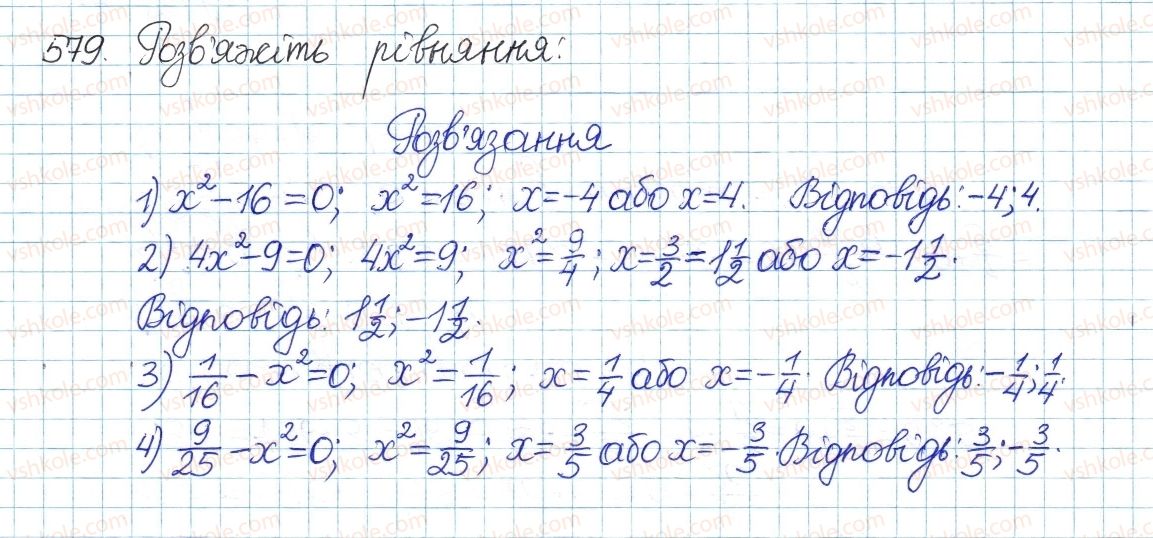 579. Розв'яжіть рівняння:
Розв'язання
1) x² − 16 = 0; x² = 16; x = −4 або x = 4. Відповідь: −4; 4.
2) 4x² − 9 = 0; 4x² = 9; x² = 9/4; x = 3/2 = 1 1/2 або x = −1 1/2.
Відповідь: 1 1/2; −1 1/2.
3) 1/16 − x² = 0; x² = 1/16; x = 1/4 або x = −1/4. Відповідь: −1/4; 1/4.
4) 9/25 − x² = 0; x² = 9/25; x = 3/5 або x = −3/5. Відповідь: 3/5; −3/5.
vshkole.com